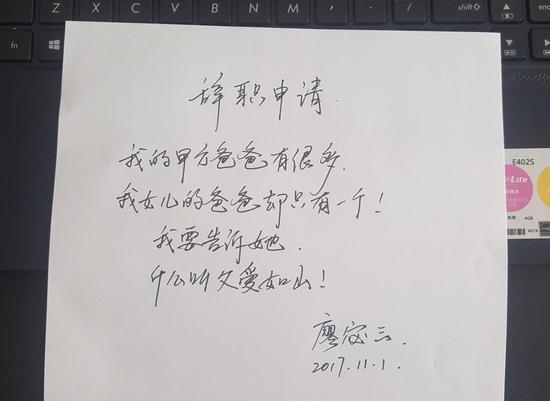 Z X C V B N M
shift
fn
alt
辞职申请.
我的甲方爸爸有很多.
我女儿的爸爸却只有一个!
我要告诉她.
什么叫父爱如山!
廖宓三.
2017.11.1.
E402S
Life
4GB